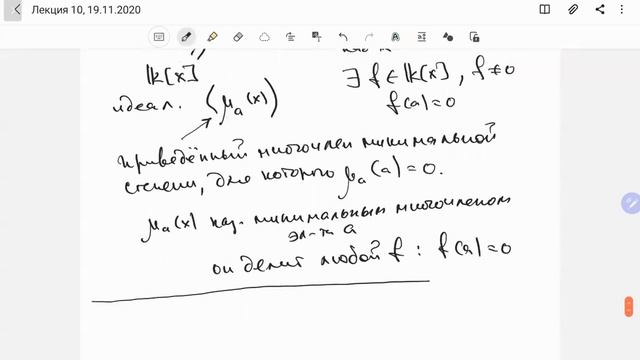 Лекция 10, 19.11.2020
𝕜[x]
∃ f ∈ 𝕜[x], f ≠ 0
идеал. (μₐ(x))
f(a) = 0
приведённый многочлен минимальной
степени, для которого μₐ(a) = 0.
μₐ(x) наз. минимальным многочленом
эл-та a
он делит любой f : f(a) = 0